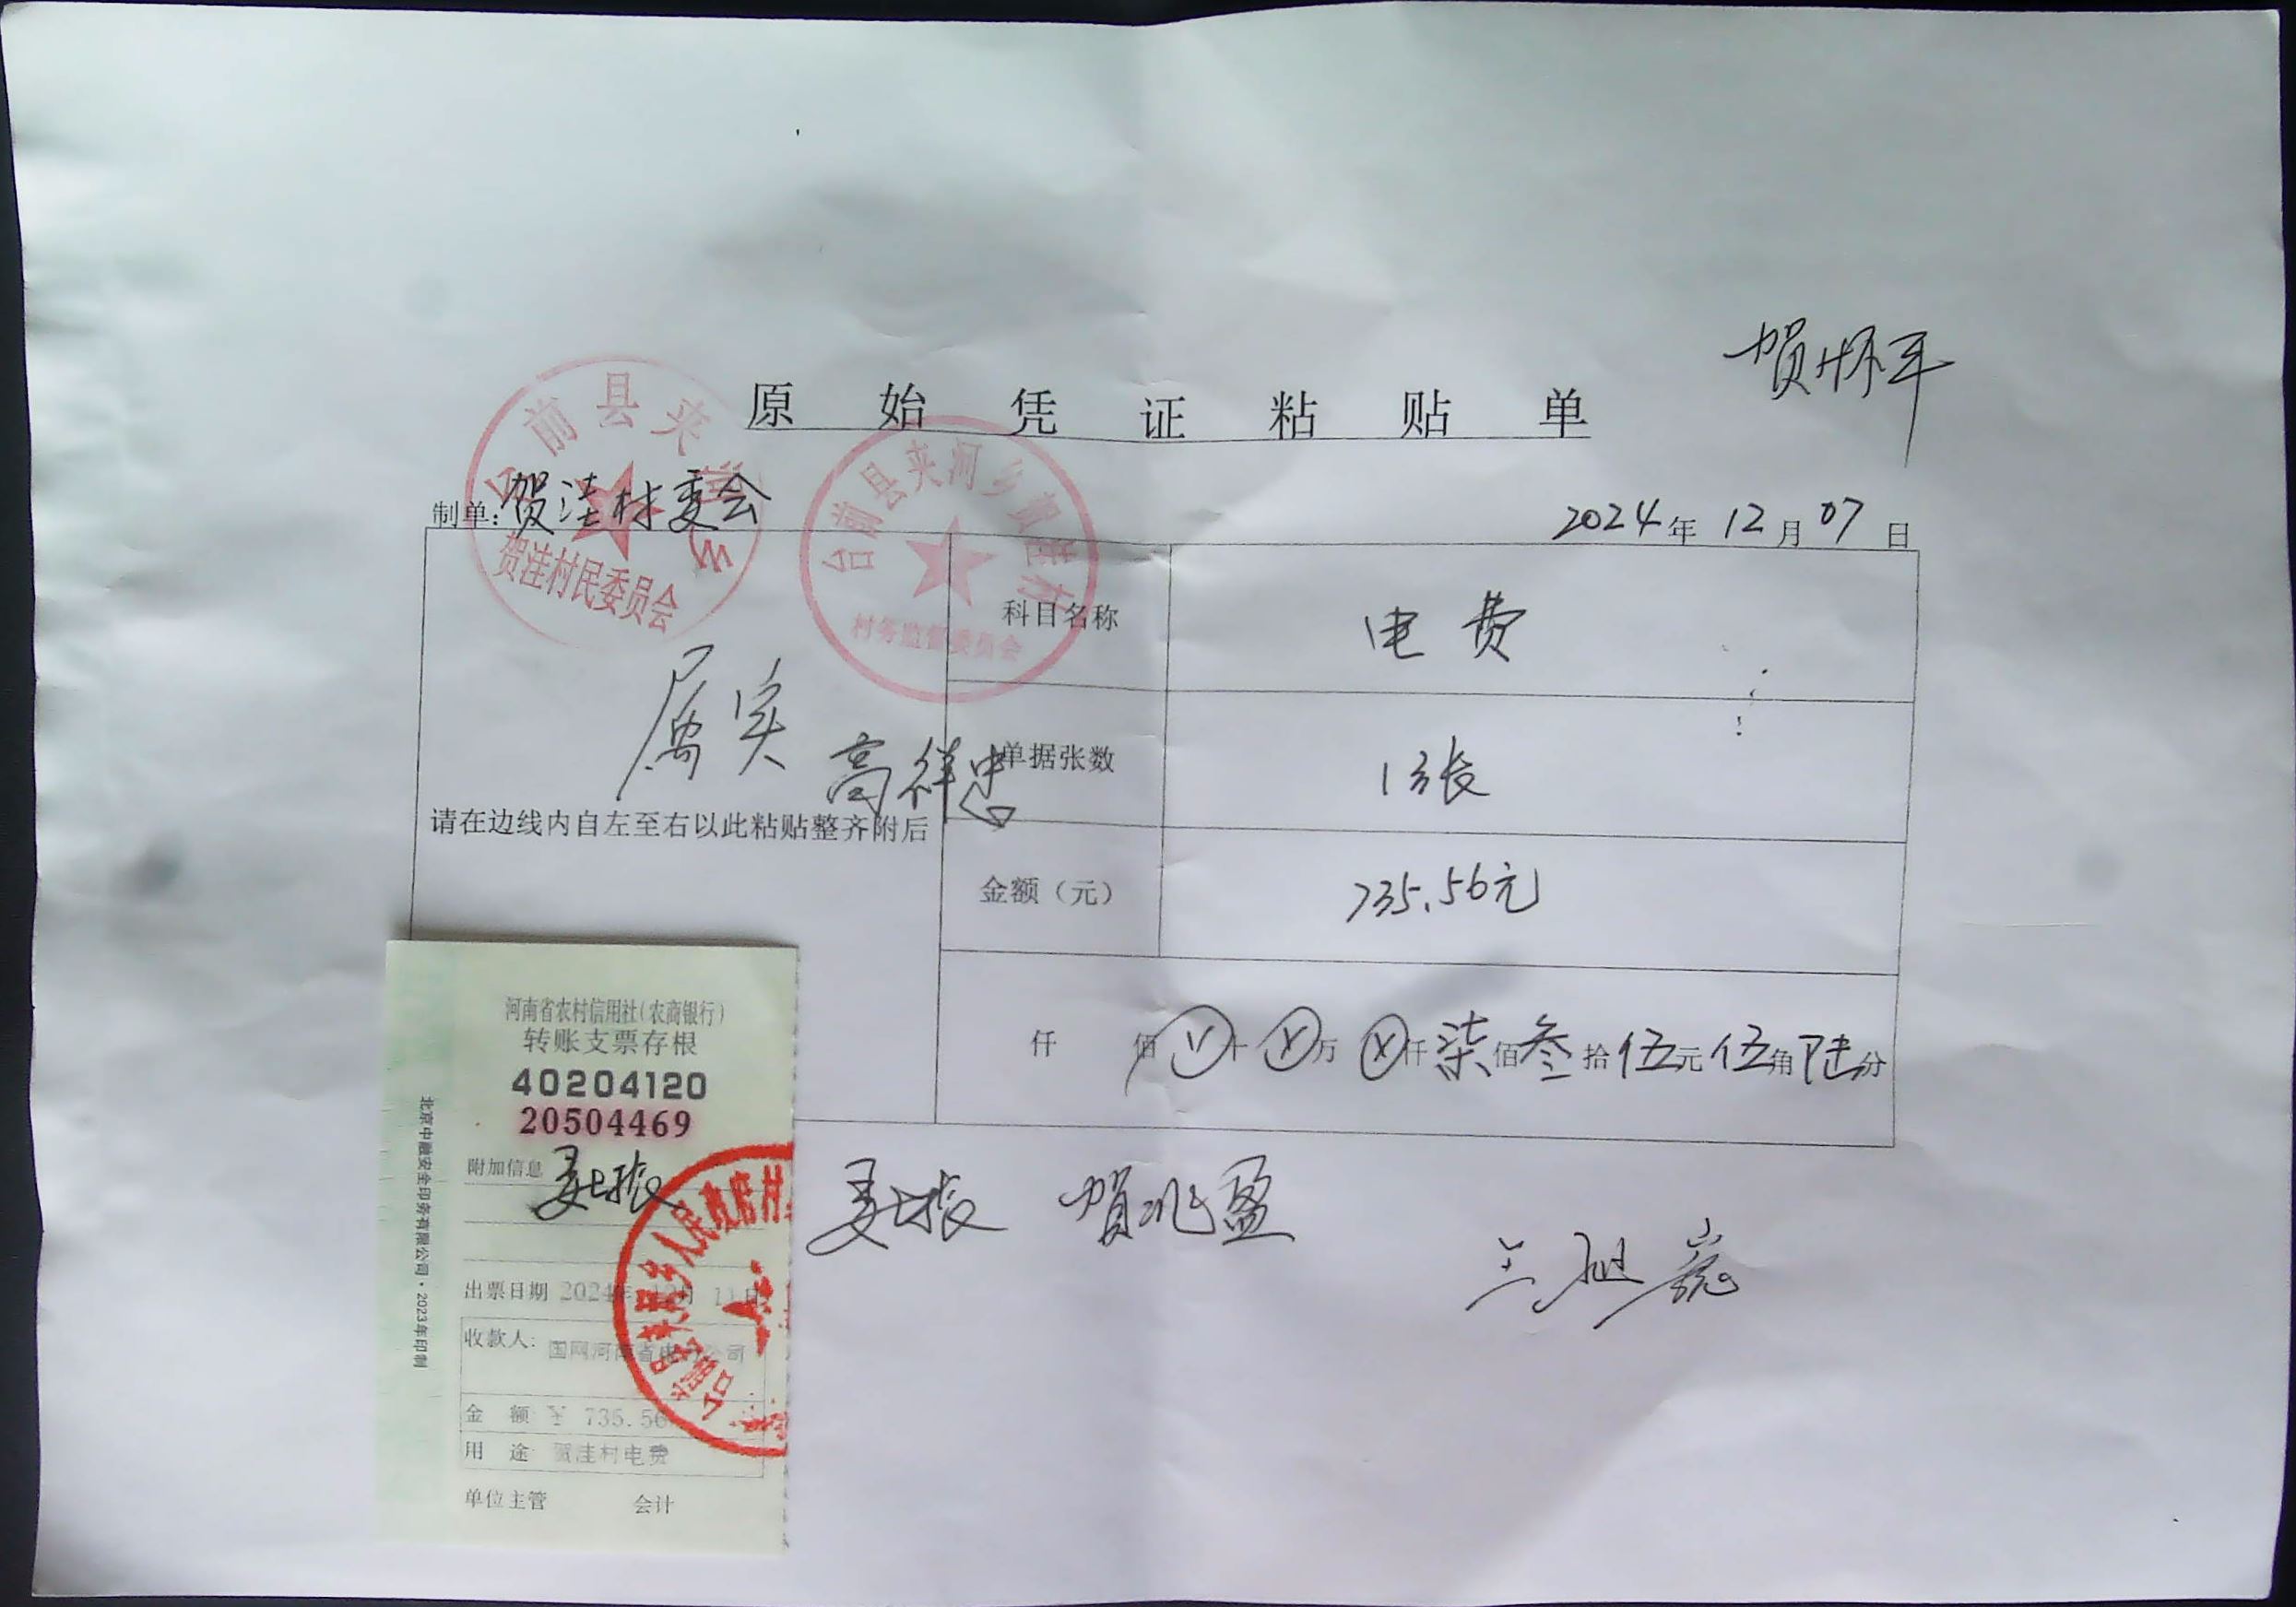 贺怀平
原始凭证粘贴单
台前县夹河乡
贺洼村民委员会
台前县夹河乡贺洼村
村务监督委员会
制单：贺洼村委会
2024年12月07日
科目名称 电费
属实 高祥忠
单据张数 13张
请在边线内自左至右以此粘贴整齐附后
金额（元） 735.56元
仟 佰 十 万 仟 柒佰叁拾伍元伍角陆分
河南省农村信用社(农商银行)
转账支票存根
40204120
20504469
附加信息
贺兆盈
出票日期 2024年12月11日
收款人: 国网河南省电力公司
金额 ￥ 735.56
用途 贺洼村电费
单位主管 会计
北京中融安全印务有限公司·2023年印制
台前县夹河乡人民政府村